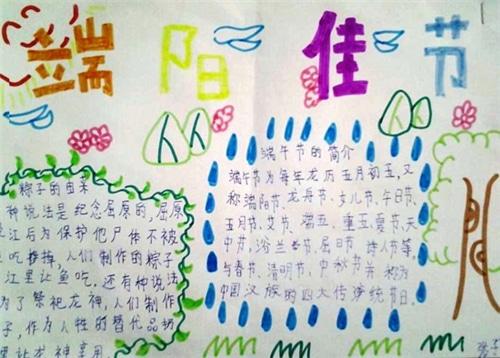 端阳佳节
粽子的由来
种说法是纪念屈原的,屈原
江后为保护他尸体不被
吃掉,人们制作的粽子
江里让鱼吃.还有种说法
为了祭祀龙神,人们制作
子,作为人牲的替代品扔
里让龙神享用
端午节的简介
端午节为每年农历五月初五,又
称端阳节、龙舟节、女儿节、午日节、
五月节、艾节、端五、重五、夏节、天
中节、浴兰节、屈日节、诗人节等,
与春节、清明节、中秋节并称为
中国汉族的四大传统节日.